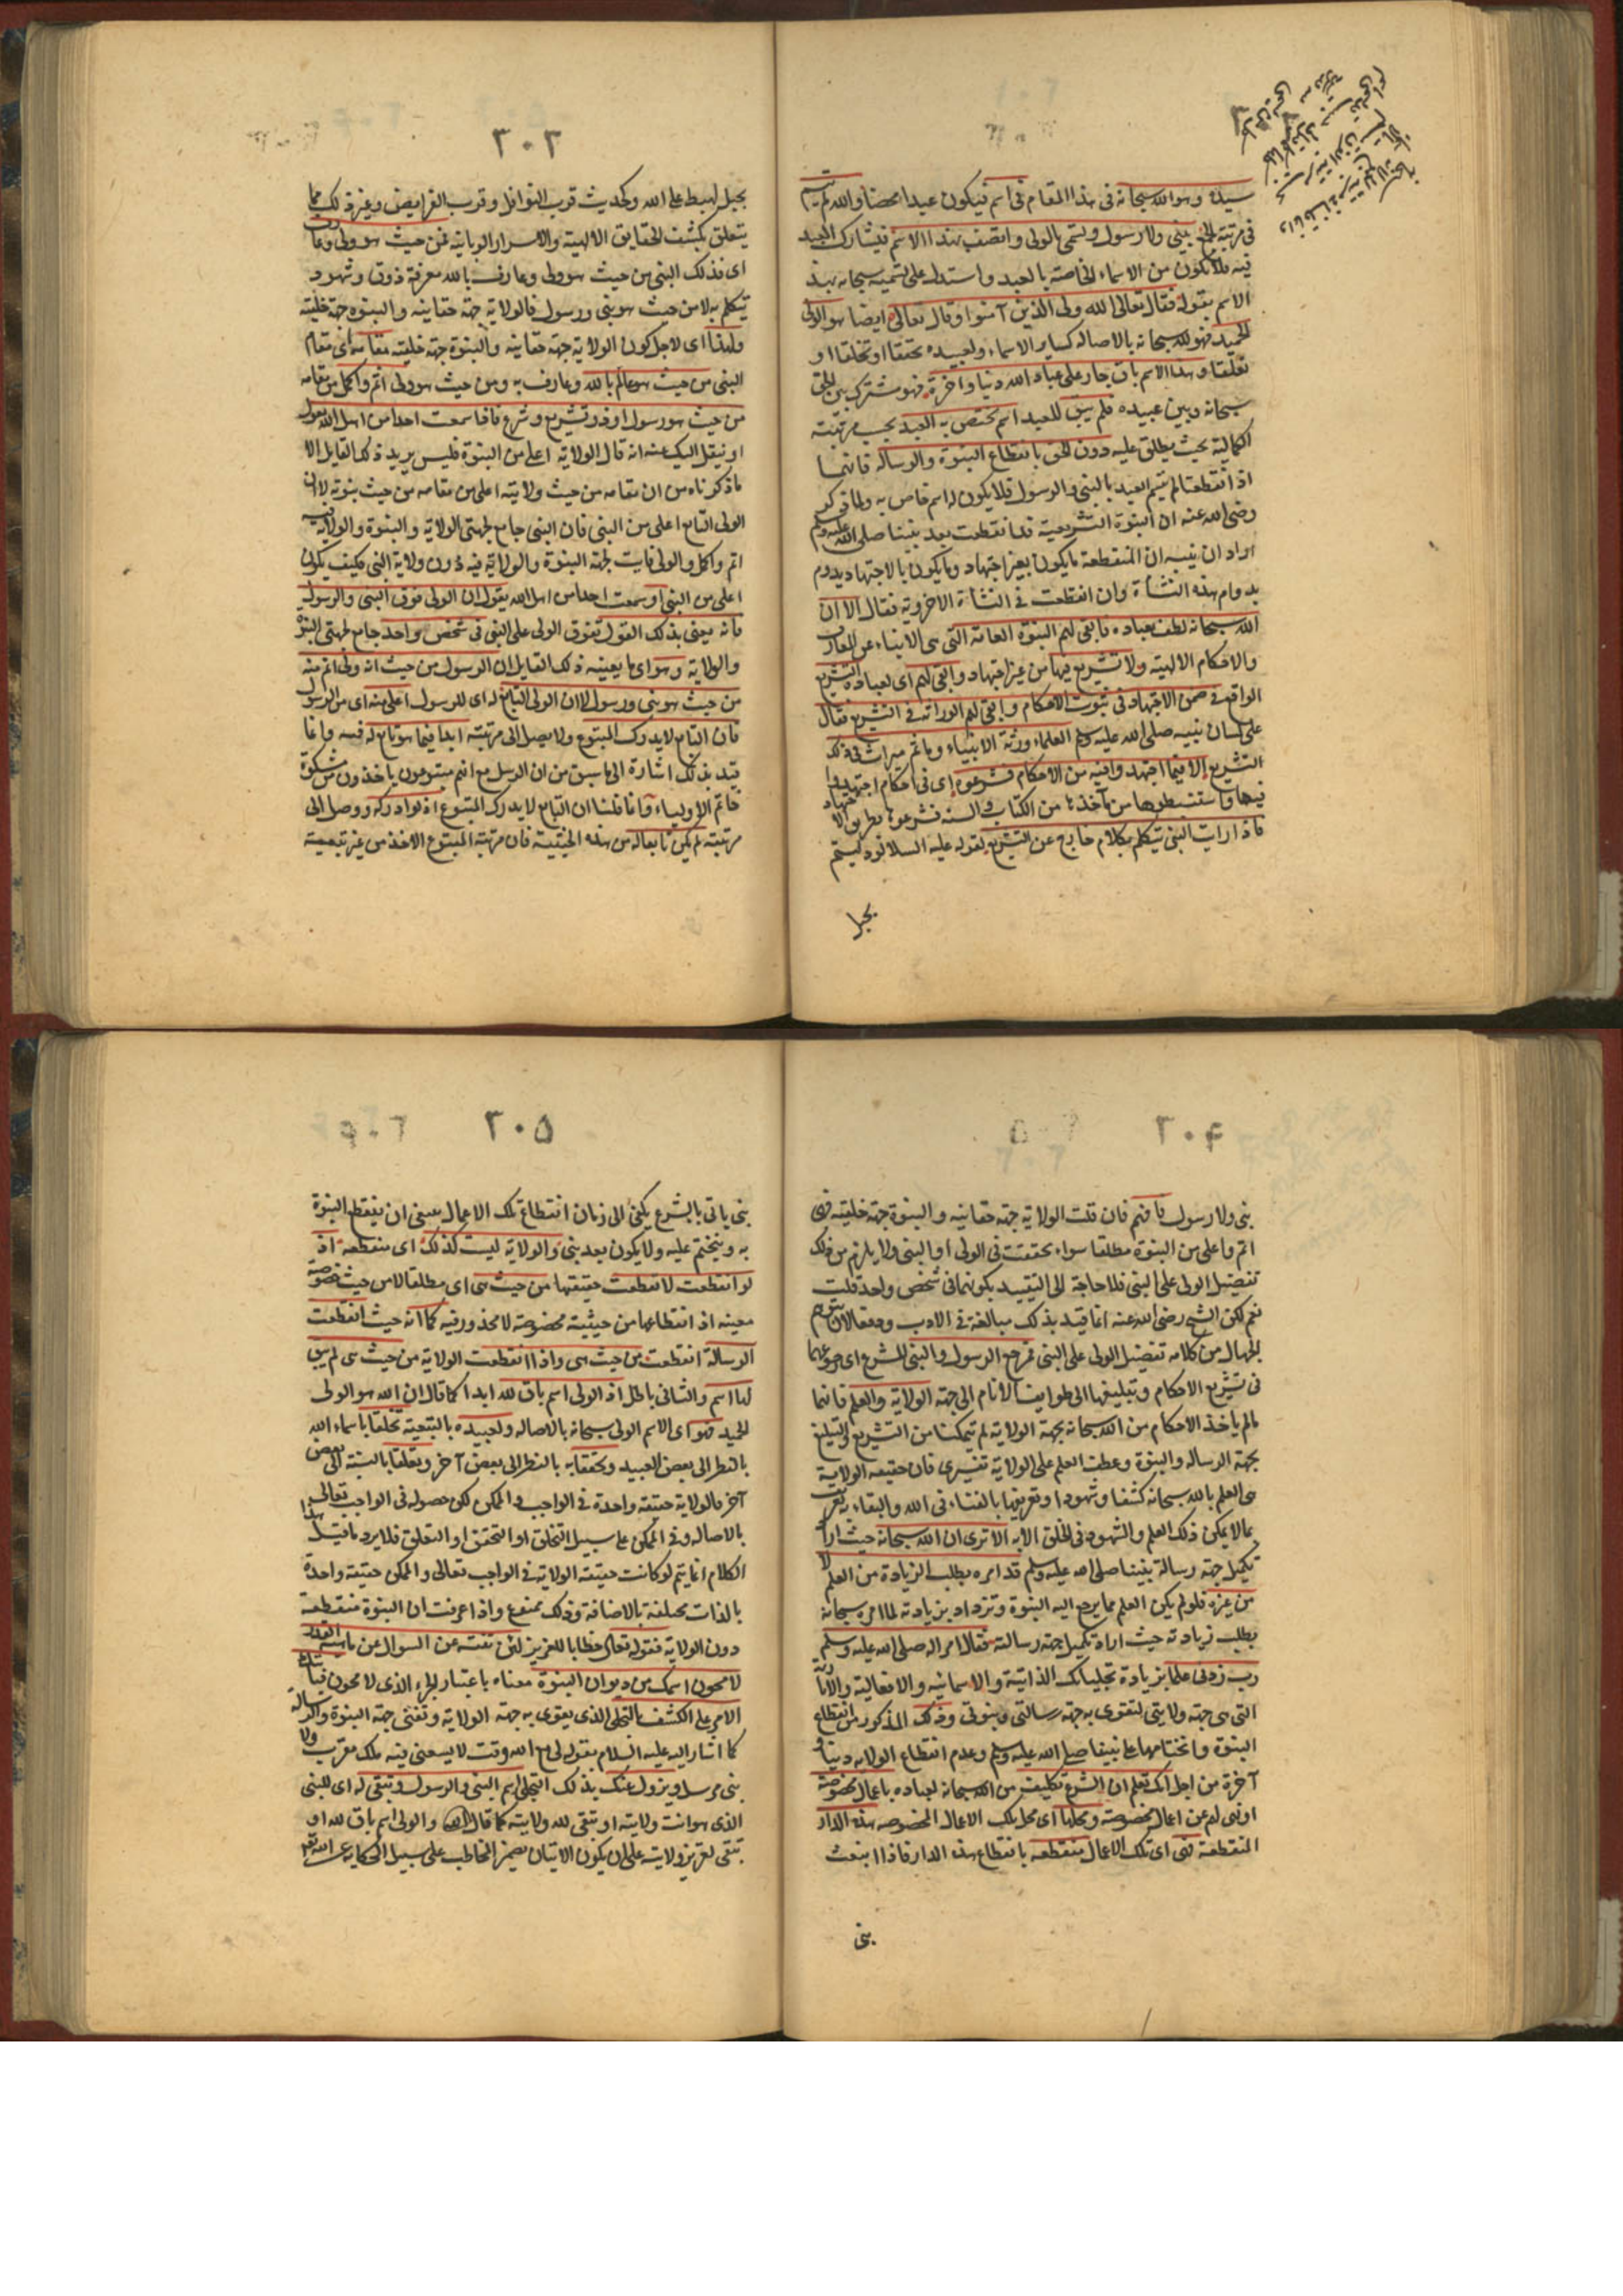 سيده وهو الله سبحانه في هذا المقام في اسم فيكون عبدا محضا والله لم يتسم
في مرتبة الجمع بنبي ولا رسول وتسمى بالولي واتصف بهذا الاسم فيشارك العبد
فيه فلا يكون من الاسماء الخاصة بالعبد واستدل على تسميته سبحانه بهذا
الاسم بقوله فقال تعالى الله ولي الذين آمنوا وقال تعالى ايضا هو الولي
الحميد فهو لله سبحانه بالاصالة كساير الاسماء ولعبيده تحققا او تخلقا او
تعلقا وهذا الاسم باق جار على عباد الله دنيا واخرة فهو مشترك بين الحق
سبحانه وبين عبيده فلم يبق للعبد اسم يختص به العبد بحسب مرتبته
الكمالية بحيث يطلق عليه دون الحق بانقطاع النبوة والرسالة فانهما
اذا انقطعتا لم يتسم العبد بالنبي والرسول فلا يكون له اسم خاص به ولما ذكر
رضي الله عنه ان النبوة التشريعية قد انقطعت بعد نبينا صلى الله عليه وسلم
اراد ان ينبه ان المنقطعة ما يكون بغير اجتهاد وما يكون بالاجتهاد يدوم
بدوام هذه النشأة وان انقطعت في النشأة الاخروية فقال الا ان
الله سبحانه لطف بعباده فابقى لهم النبوة العامة التي هي الانباء عن المعارف
والاحكام الالهية ولا تشريع فيها من غير اجتهاد وابقى لهم اي لعباده التشريع
الواقع في ضمن الاجتهاد في ثبوت الاحكام وابقى لهم الوراثة في التشريع فقال
على لسان نبيه صلى الله عليه وسلم العلماء ورثة الانبياء وما ثم ميراث في ذلك
التشريع الا فيما اجتهدوا فيه من الاحكام فشرعوه اي في احكام اجتهدوا
فيها واستنبطوها من مآخذها من الكتاب والسنة فشرعوها بطريق الاجتهاد
فاذا رايت النبي يتكلم بكلام خارج عن التشريع كقوله عليه السلام لو دليتم
بحبل
٣٠٣
بحبل لهبط على الله وكحديث قرب النوافل وقرب الفرايض وغير ذلك مما
يتعلق بكشف الحقايق الالهية والاسرار الربانية فمن حيث هو ولي وعارف
اي فذلك النبي من حيث هو ولي وعارف بالله معرفة ذوق وشهود
يتكلم به لا من حيث هو نبي ورسول فالولاية جهة حقانية والنبوة جهة خلقية
ولهذا اي لاجل كون الولاية جهة حقانية والنبوة جهة خلقية مقامه اي مقام
النبي من حيث هو عالم بالله وعارف به ومن حيث هو ولي اتم واكمل من مقامه
من حيث هو رسول او ذو تشريع وشرع فاذا سمعت احدا من اهل الله يقول
او ينقل اليك عنه انه قال الولاية اعلى من النبوة فليس يريد ذلك القايل الا
ما ذكرناه من ان مقامه من حيث ولايته اعلى من مقامه من حيث نبوته لا ان
الولي التابع اعلى من النبي فان النبي جامع لجهتي الولاية والنبوة والولاية فيه
اتم واكمل والولي فايت لجهة النبوة والولاية فيه دون ولاية النبي فكيف يكون
اعلى من النبي او سمعت احدا من اهل الله يقول ان الولي فوق النبي والرسول
فانه يعني بذلك القول تفوق الولي على النبي في شخص واحد جامع لجهتي النبوة
والولاية وهو اي ما يعنيه ذلك القايل ان الرسول من حيث انه ولي اتم منه
من حيث هو نبي ورسول لا ان الولي التابع له اي للرسول اعلى منه اي من الرسول
فان التابع لا يدرك المتبوع ولا يصل الى مرتبته ابدا فيما هو تابع له فيه وانما
قيد بذلك اشارة الى ما سبق من ان الرسل مع انهم متبوعون ياخذون من مشكوة
خاتم الاولياء وانما قلنا ان التابع لا يدرك المتبوع اذ لو ادركه ووصل الى
مرتبته لم يكن تابعا له من هذه الحيثية فان مرتبة المتبوع الاخذ من غير تبعية
٣٠٤
نبي ولا رسول فافهم فان قلت الولاية جهة حقانية والنبوة جهة خلقية فهي
اتم واعلى من النبوة مطلقا سواء تحققت في الولي او النبي ولا يلزم من ذلك
تفضيل الولي على النبي فلا حاجة الى التقييد بكونهما في شخص واحد قلت
نعم لكن الشيخ رضي الله عنه انما قيد بذلك مبالغة في الادب ودفعا لان يتوهم
الجهال من كلامه تفضيل الولي على النبي فمرجع الرسول والنبي للشرع اي رجوعهما
في تشريع الاحكام وتبليغها الى طوايف الانام الى جهة الولاية والعلم فانهما
ما لم ياخذ الاحكام من الله سبحانه بجهة الولاية لم يتمكنا من التشريع والتبليغ
بجهة الرسالة والنبوة وعطف العلم على الولاية تفسيري فان حقيقة الولاية
هي العلم بالله سبحانه كشفا وشهودا وتعريفها بالفناء في الله والبقاء به تعريف
بما لا يمكن ذلك العلم والشهود في الخلق الا به الا ترى ان الله سبحانه حيث اراد
تكميل جهة رسالة نبينا صلى الله عليه وسلم قد امره بطلب الزيادة من العلم لا
من غيره فلو لم يكن العلم مما يرجع اليه النبوة وتزداد بزيادته لما امره سبحانه
بطلب زيادته حيث اراد تكميل جهة رسالته فقال امرا له صلى الله عليه وسلم
رب زدني علما بزيادة تجلياتك الذاتية والاسمائية والافعالية والاثارية
التي هي جهة ولايتي لتقوى به جهة رسالتي ونبوتي وذلك المذكور من انقطاع
النبوة واختتامها على نبينا صلى الله عليه وسلم وعدم انقطاع الولاية دينا و
آخرة من اجل انك تعلم ان الشرع تكليف من الله سبحانه لعباده باعمال مخصوصة
او نهي لهم عن اعمال مخصوصة ومحلها اي محل تلك الاعمال المخصوصة هذه الدار
المنقطعة فهي اي تلك الاعمال منقطعة بانقطاع هذه الدار فاذا انبعث
نبي
٣٠٥
نبي ياتي بالشرع يكفي الى زمان انقطاع تلك الاعمال ينبغي ان ينقطع النبوة
به ويختتم عليه ولا يكون بعد نبي والولاية ليست كذلك اي منقطعة اذ
لو انقطعت لانقطعت حقيقتها من حيث هي اي مطلقا لا من حيث خصوصية
معينة اذ انقطاعها من حيثية مخصوصة لا محذور فيه كما انه حيث انقطعت
الرسالة انقطعت من حيث هي واذا انقطعت الولاية من حيث هي لم يبق
لها اسم والثاني باطل اذ الولي اسم باق لله ابدا كما قال ان الله هو الولي
الحميد فهو اي الاسم الولي سبحانه بالاصالة ولعبيده بالتبعية تخلقا باسماء الله
بالنظر الى بعض العبيد وتحققا به بالنظر الى بعض آخر وتعلقا بالنسبة الى بعض
آخر فالولاية حقيقة واحدة في الواجب والممكن لكن حصوله في الواجب تعالى
بالاصالة وفي الممكن على سبيل التخلق او التحقق او التعلق فلا يرد ما قيل هذا
الكلام انما يتم لو كانت حقيقة الولاية في الواجب تعالى والممكن حقيقة واحدة
بالذات مختلفة بالاضافة وذلك ممنوع واذا عرفت ان النبوة منقطعة
دون الولاية فقوله تعالى خطابا للعزيز لئن لم تنته عن السوال عن ماهية القدر
لامحون اسمك من ديوان النبوة معناه باعتبار الجزء الذي لامحون فياتيك
الامر على الكشف بالتجلي الذي يقوى به جهة الولاية وتفنى جهة النبوة والرسالة
كما اشار اليه عليه السلام بقوله لي مع الله وقت لا يسعني فيه ملك مقرب ولا
نبي مرسل ويزول عنك بذلك التجلي اسم النبي والرسول وتبقى له اي للنبي
الذي هو انت ولايته او تبقى لله ولايته كما قال الله والولي اسم باق لله او
تبقى لعزيز ولايته على ان يكون الاتيان بضمير المخاطب على سبيل الحكاية عن الله